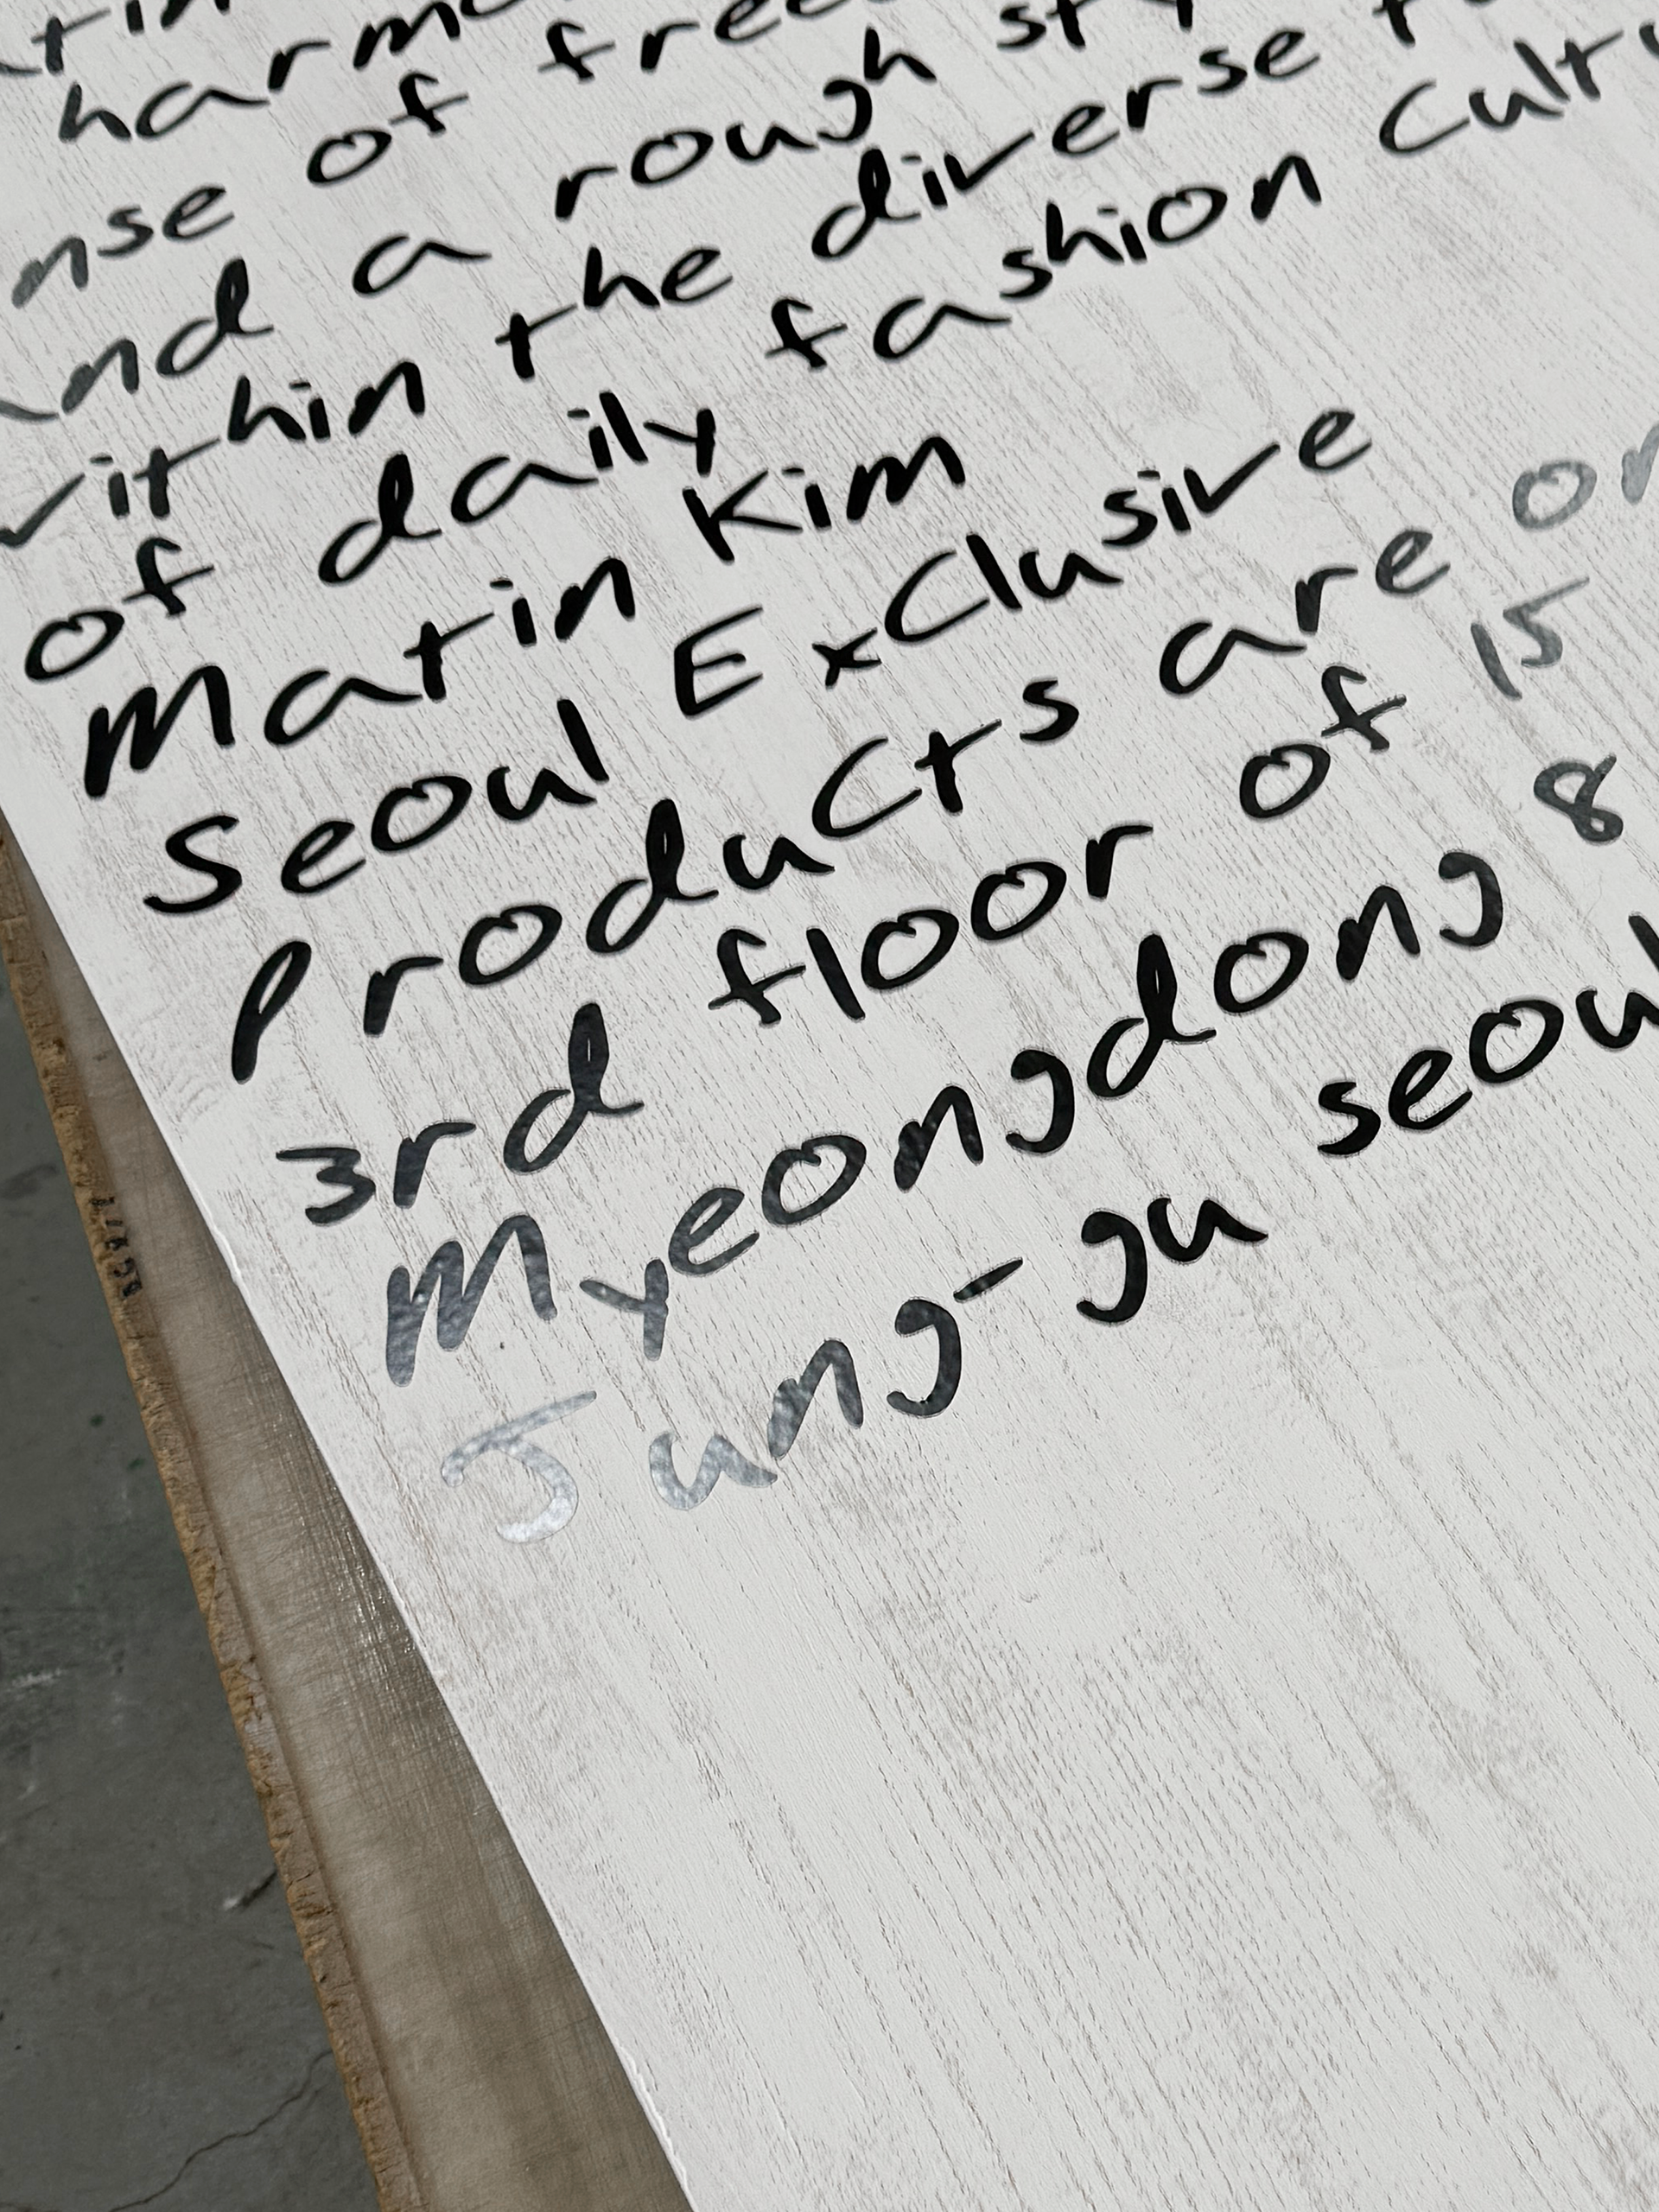 of
nse of
and a rough
within the diverse
of daily fashion
Matin Kim
Seoul Exclusive
Products are
3rd floor of 15
Myeongdong 8
Jung-gu seoul